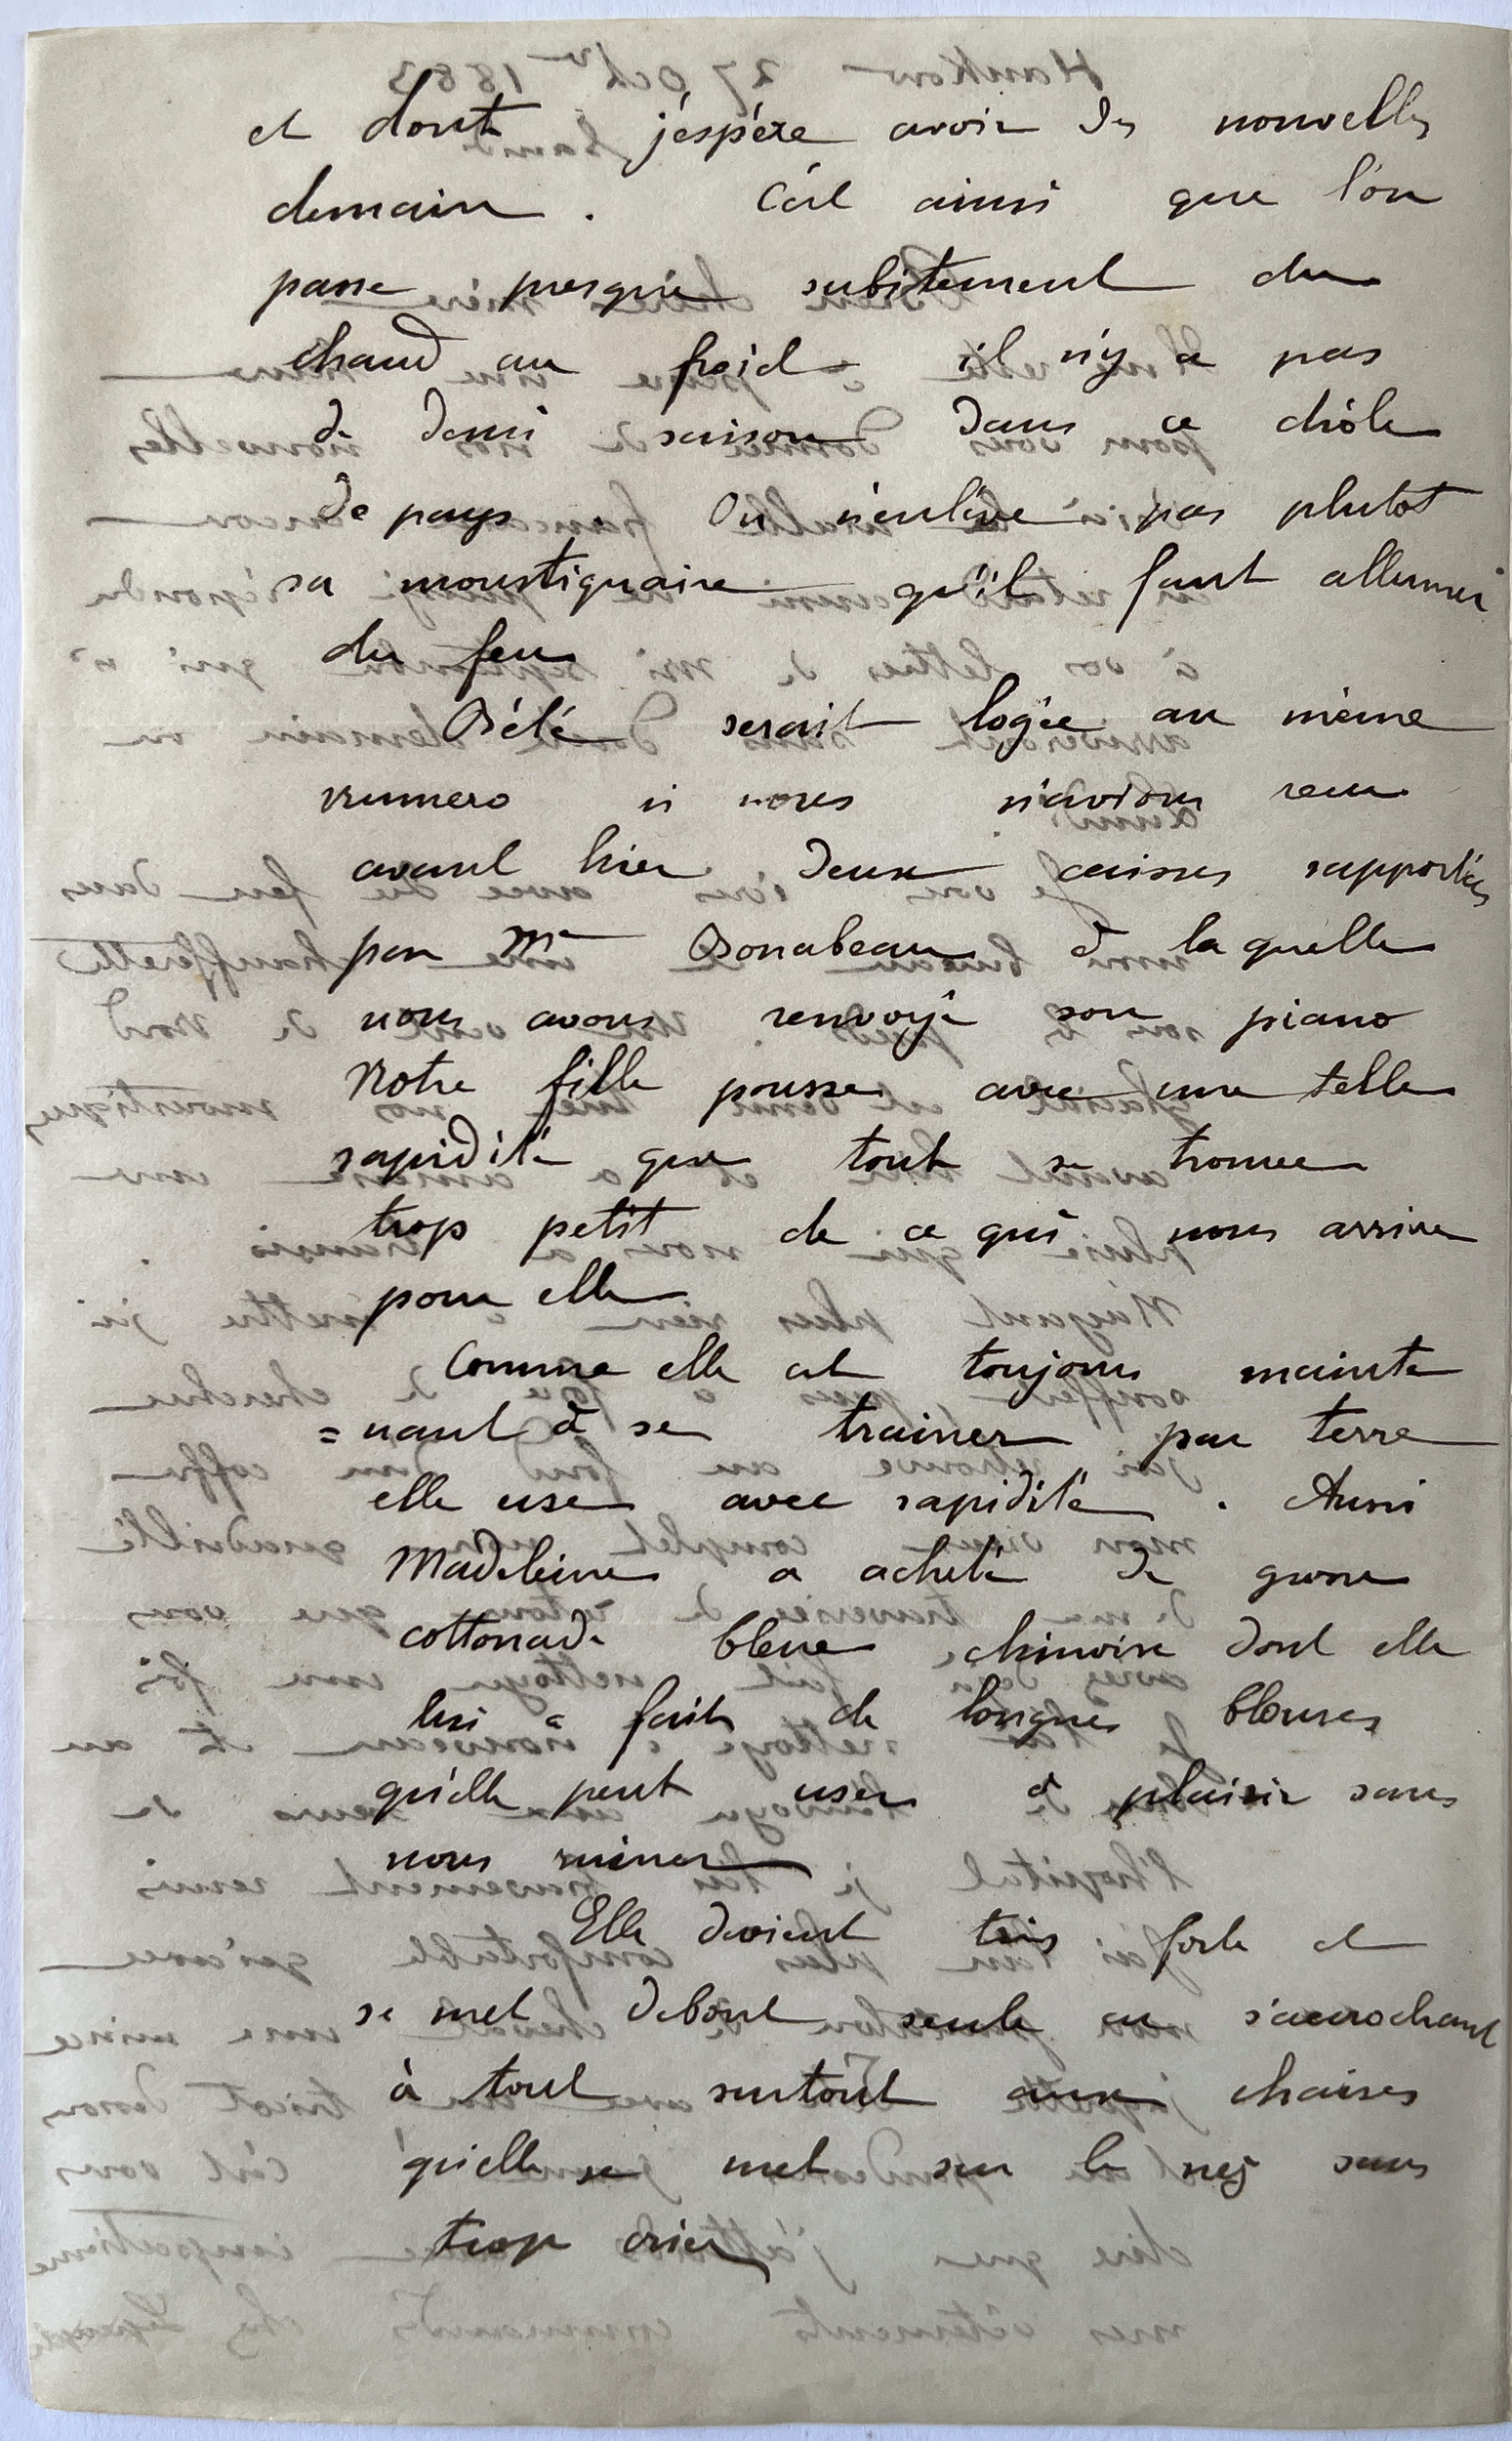 et dont j'espère avoir des nouvelles
demain. C'est ainsi que l'on
passe presque subitement du
chaud au froid il n'y a pas
de demi saison dans ce drôle
de pays. On n'enlève pas plutot
sa moustiquaire qu'il faut allumer
du feu
Bélé serait logée au même
numero si nous n'avions recu
avant hier deux caisses rapportées
par Me Bonabeau à la quelle
nous avons renvoyé son piano
Notre fille pousse avec une telle
rapidité que tout se trouve
trop petit de ce qui nous arrive
pour elle
Comme elle est toujours mainte
= nant à se trainer par terre
elle use avec rapidité. Aussi
Madeleine a acheté de grosse
cottonade bleue chinoise dont elle
lui a fait de longues blouses
qu'elle peut user à plaisir sans
nous ruiner
Elle devient très forte et
se met debout seule en s'accrochant
à tout surtout aux chaises
qu'elle se met sur le nez sans
trop crier